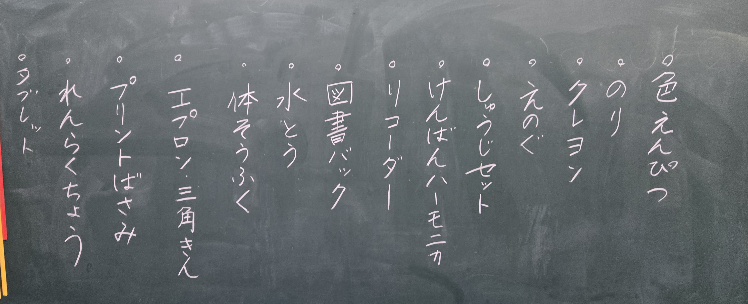 。色えんぴつ
。のり
。クレヨン
。えのぐ
。しゅうじセット
。けんばんハーモニカ
。リコーダー
。図書バック
。水とう
。体そうふく
。エプロン・三角きん
。プリントばさみ
。れんらくちょう
。タブレット